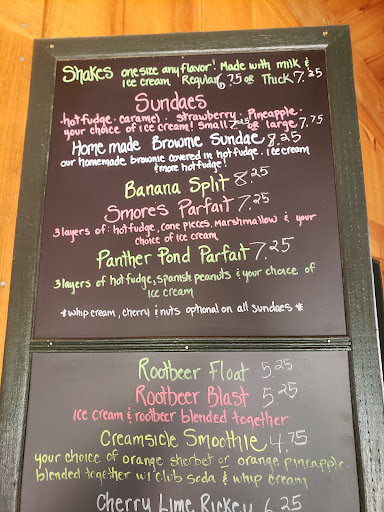 Shakes one size any flavor! Made with milk &
ice cream Regular 6.75 or Thick 7.25
Sundaes
hot fudge · caramel · strawberry · Pineapple ·
your choice of ice cream! Small or large 7.75
Home made Brownie Sundae 8.25
our homemade brownie covered in hot fudge · ice cream
& more hot fudge!
Banana Split 8.25
Smores Parfait 7.25
3 layers of: hot fudge, cone pieces, marshmallow & your
choice of ice cream
Panther Pond Parfait 7.25
3 layers of hot fudge, spanish peanuts & your choice of
ice cream
*whip cream, cherry & nuts optional on all sundaes*
Rootbeer Float 5.25
Rootbeer Blast 5.25
Ice cream & rootbeer blended together
Creamsicle Smoothie 4.75
your choice of orange sherbet or orange pineapple
blended together w/ club soda & whip cream
Cherry Lime Rickey 6.25